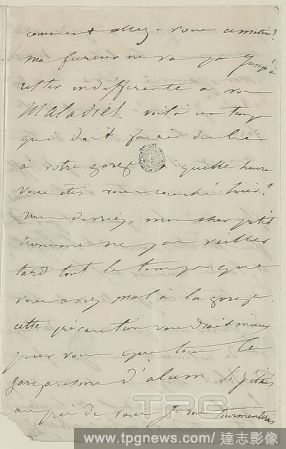 comment allez-vous ce matin?
ma fureur ne va pas jusqu'à
être indifférente à vos
Maladies. voilà un temps
qui doit faire du bien
à votre gorge. à quelle heure
vous êtes-vous couché hier?
vous devriez, mon cher petit
homme ne pas veiller
tard tout le temps que
vous avez mal à la gorge.
cette précaution vaudrait mieux
pour vous que tous les
gargarismes d'alum
au je vous tourmenterai
TPG
www.tpgnews.com/ 達志影像